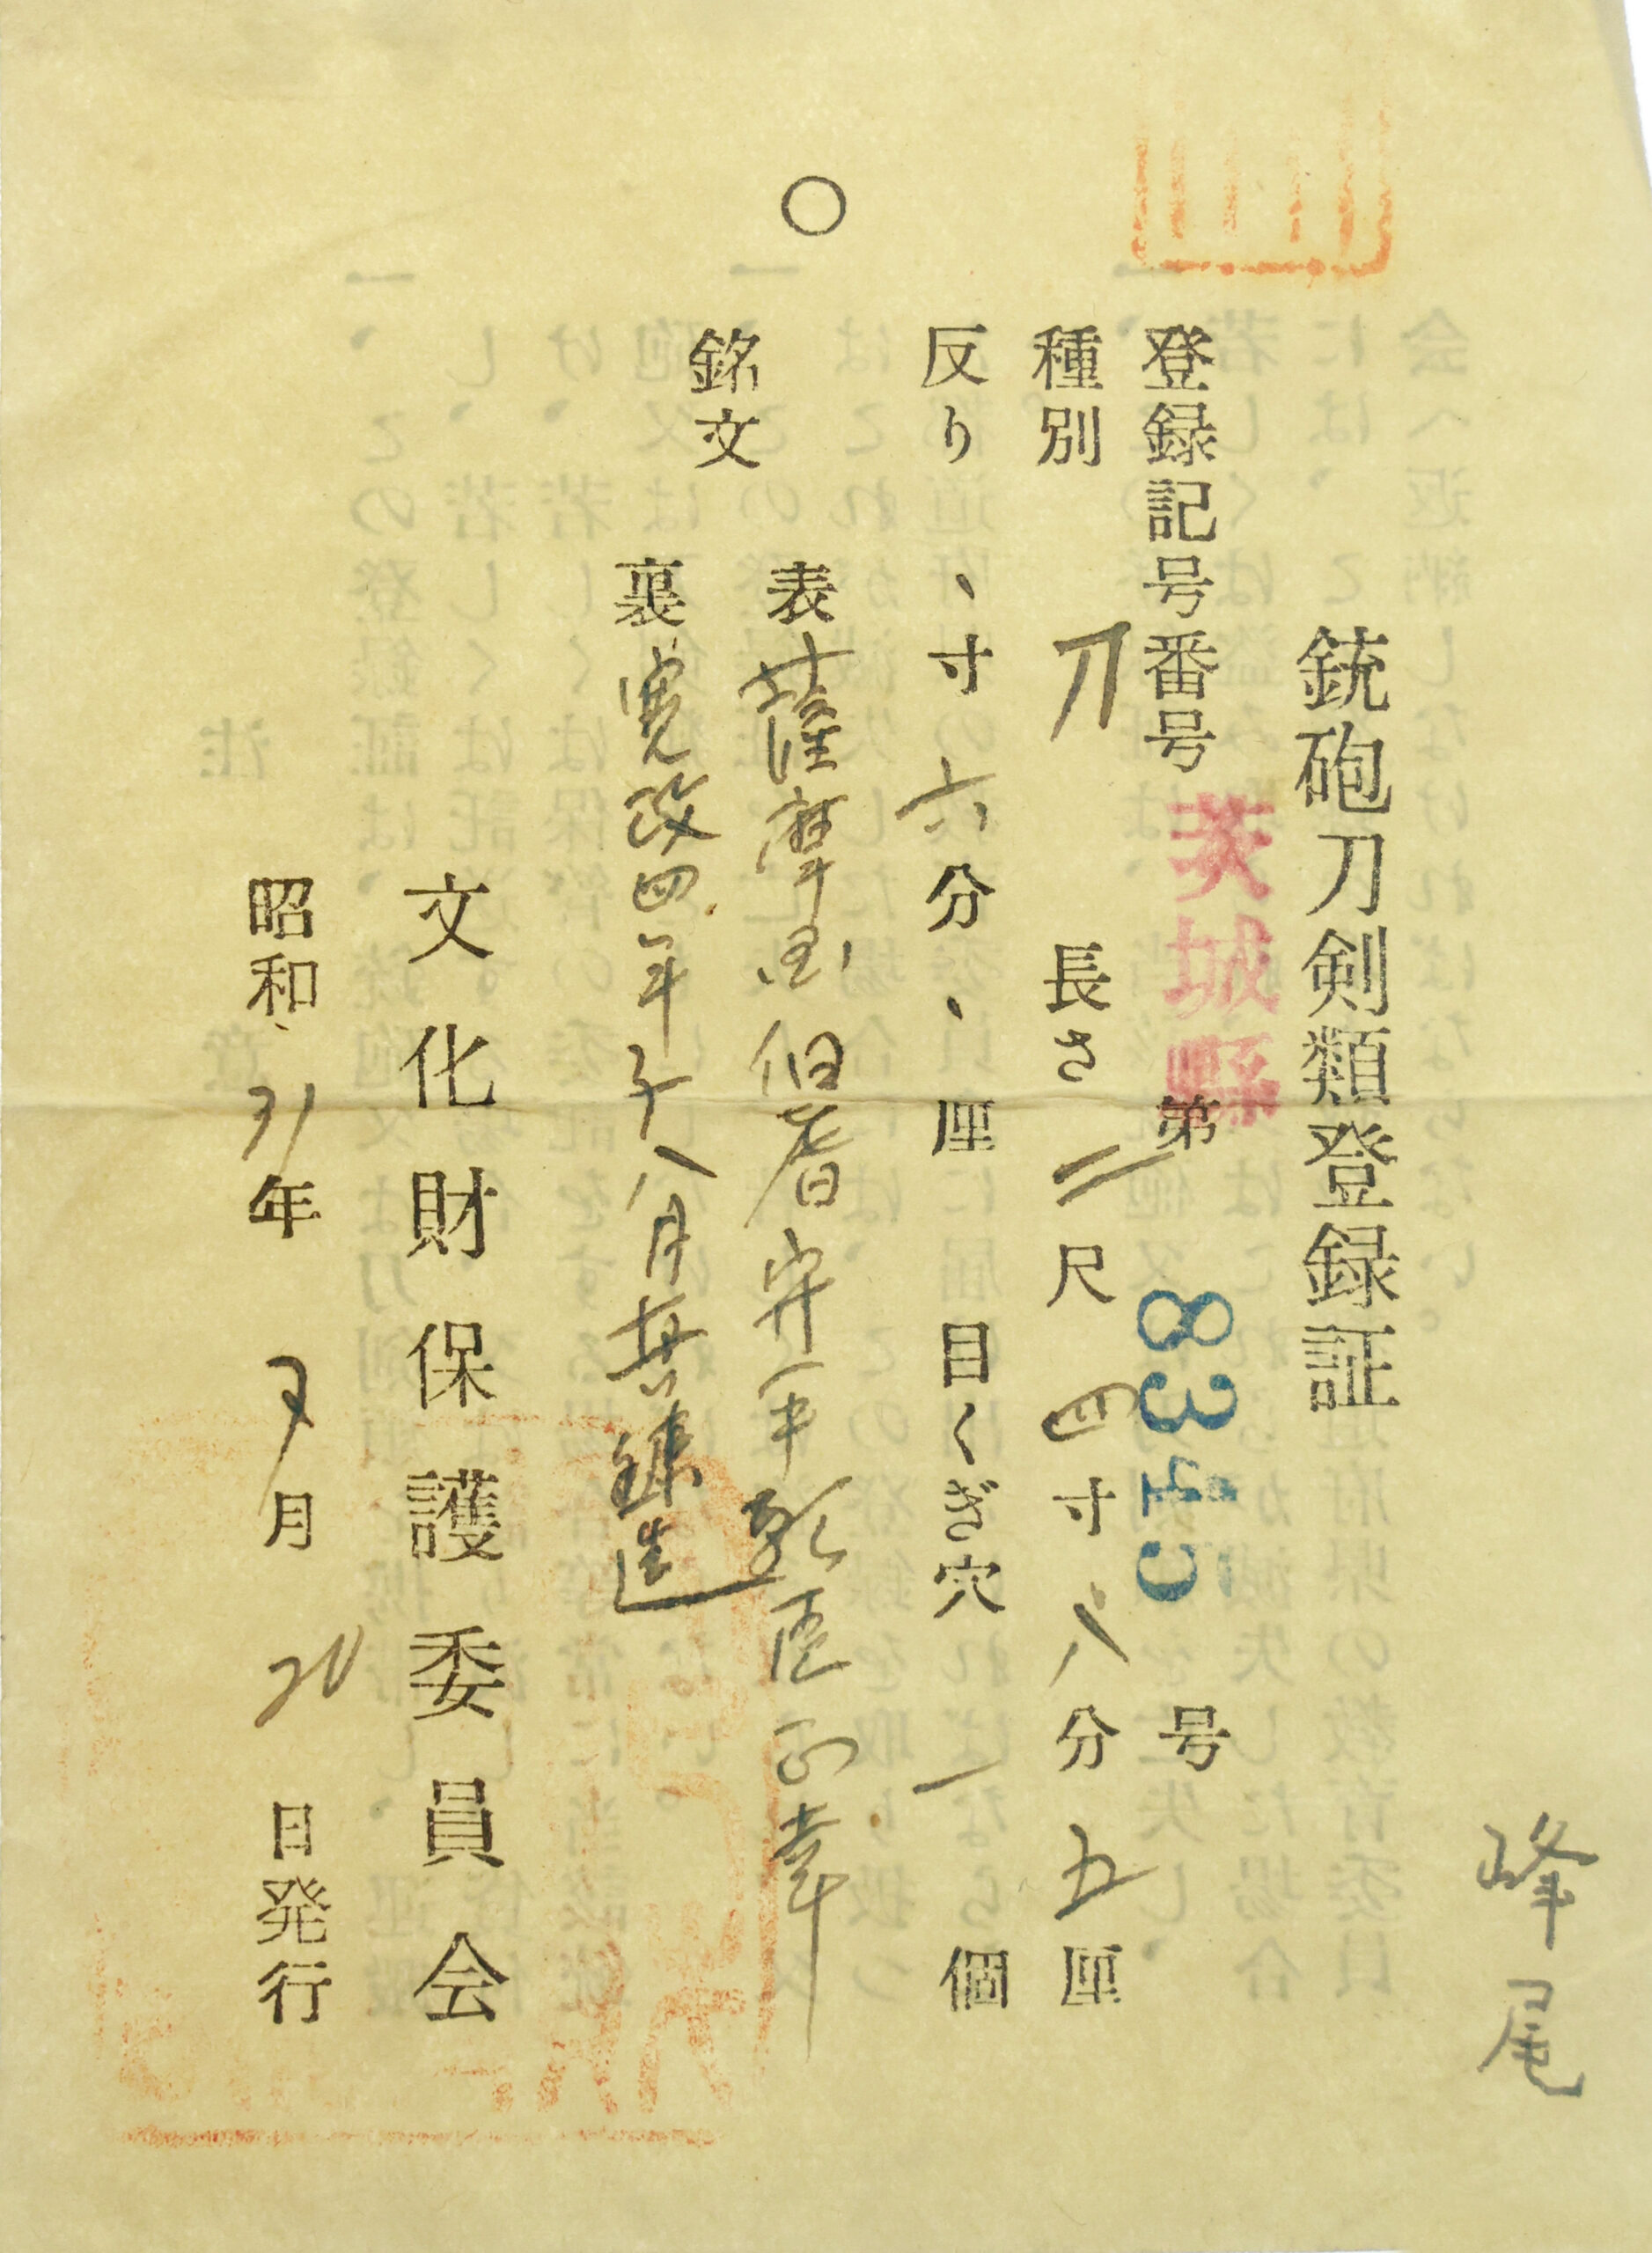 峰尾
銃砲刀剣類登録証
登録記号番号 茨城縣 第 8345 号
種別 刀 長さ 二尺四寸八分五厘
反り 、寸六分、厘 目くぎ穴 一個
銘文
表 薩摩国伯耆守平朝臣正幸
裏 寛政四年子八月 造
文化財保護委員会
昭和 31年 月 20日発行